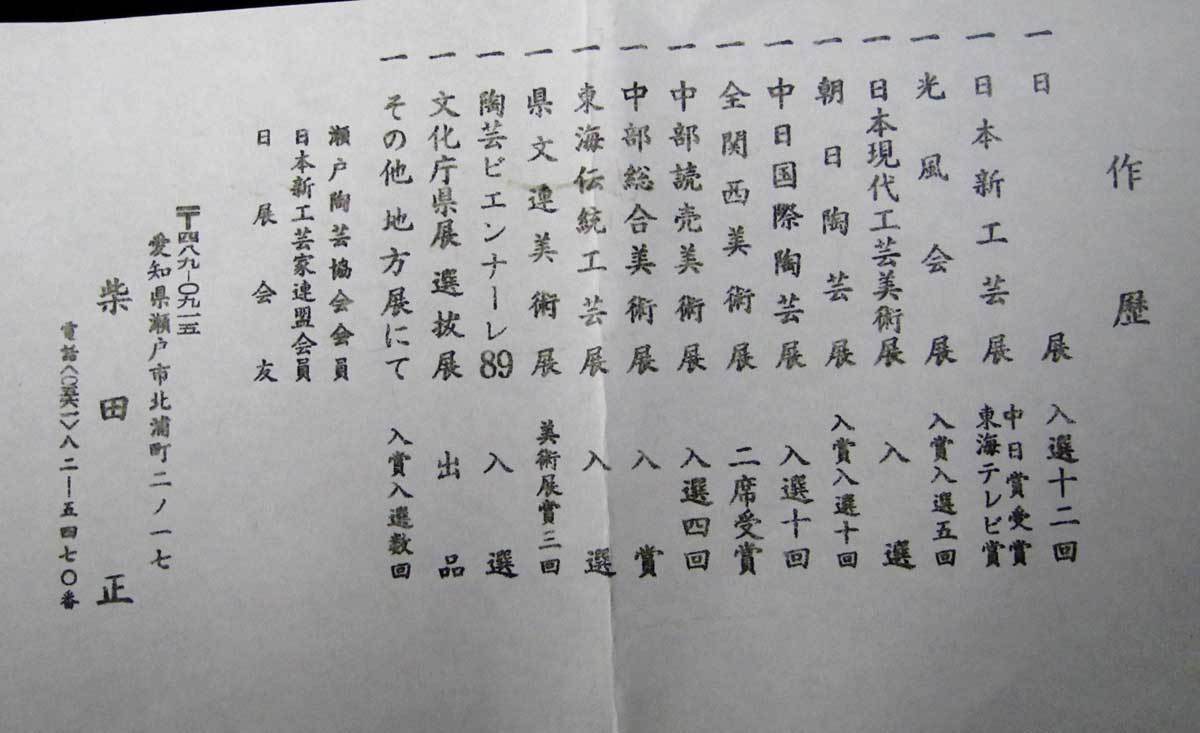 作歴
一 日展 入選十二回
一 日本新工芸展 中日賞受賞
東海テレビ賞
一 光風会展 入賞入選五回
一 日本現代工芸美術展 入選
一 朝日陶芸展 入賞入選十回
一 中日国際陶芸展 入選十回
一 全関西美術展 二席受賞
一 中部読売美術展 入選四回
一 中部総合美術展 入賞
一 東海伝統工芸展 入選
一 県文連美術展 美術展賞三回
一 陶芸ビエンナーレ89 入選
一 文化庁県展選抜展 出品
一 その他地方展にて 入賞入選数回
瀬戸陶芸協会会員
日本新工芸家連盟会員
日展会友
〒四八九−〇九一五
愛知県瀬戸市北浦町二ノ一七
柴田正
電話〈〇五六一〉八二−五四七〇番